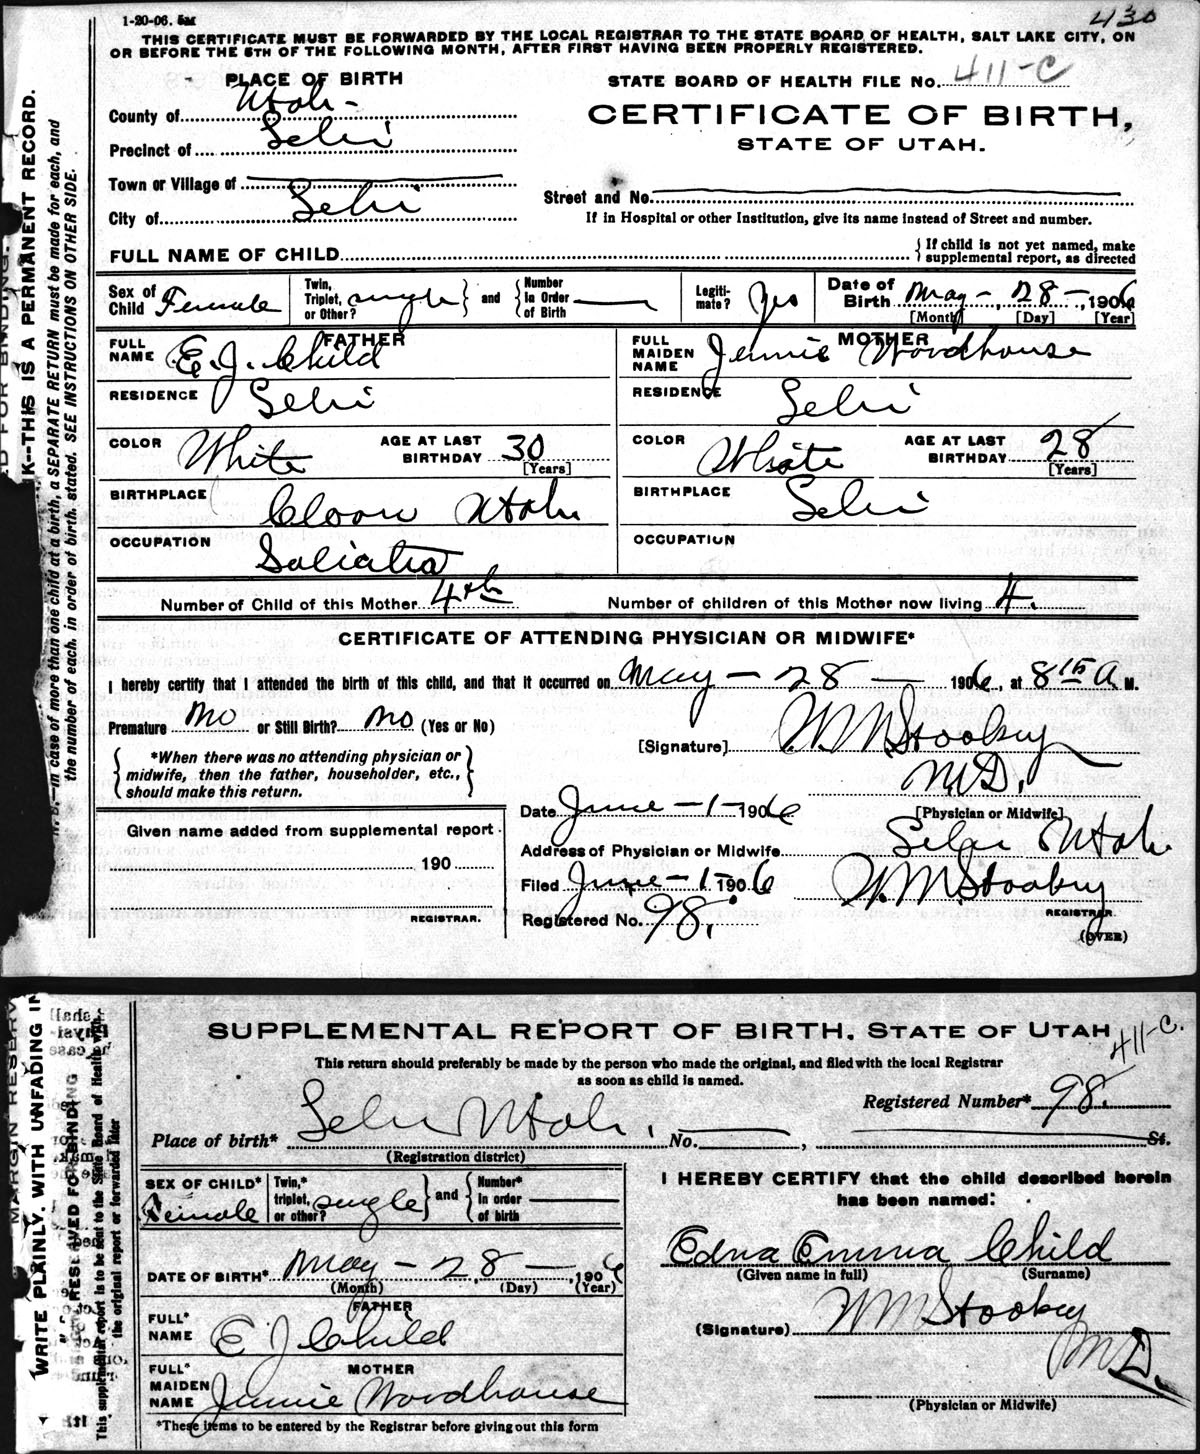 1-20-06. 5M
430
THIS CERTIFICATE MUST BE FORWARDED BY THE LOCAL REGISTRAR TO THE STATE BOARD OF HEALTH, SALT LAKE CITY, ON
OR BEFORE THE 5TH OF THE FOLLOWING MONTH, AFTER FIRST HAVING BEEN PROPERLY REGISTERED.
PLACE OF BIRTH
STATE BOARD OF HEALTH FILE No. 411-C
County of Utah
CERTIFICATE OF BIRTH,
Precinct of Lehi
STATE OF UTAH.
Town or Village of
Street and No.
City of Lehi
If in Hospital or other Institution, give its name instead of Street and number.
FULL NAME OF CHILD
{If child is not yet named, make
supplemental report, as directed
Sex of Child Female
Twin, Triplet, or Other? single } and { Number in Order of Birth
Legiti-mate? Yes
Date of Birth May - 28 - 1906
[Month] [Day] [Year]
FATHER
MOTHER
FULL NAME E. J. Child
FULL MAIDEN NAME Jennie Woodhouse
RESIDENCE Lehi
RESIDENCE Lehi
COLOR White AGE AT LAST BIRTHDAY 30 [Years]
COLOR White AGE AT LAST BIRTHDAY 28 [Years]
BIRTHPLACE Utah
BIRTHPLACE Lehi
OCCUPATION
OCCUPATION
Number of Child of this Mother 4th
Number of children of this Mother now living 4.
CERTIFICATE OF ATTENDING PHYSICIAN OR MIDWIFE*
I hereby certify that I attended the birth of this child, and that it occurred on May - 28 - 1906, at 8 15 A M.
Premature No or Still Birth? No (Yes or No)
[Signature] W M Stookey
M.D.
[Physician or Midwife]
{ *When there was no attending physician or
midwife, then the father, householder, etc.,
should make this return. }
Date June - 1 - 1906
Given name added from supplemental report
Address of Physician or Midwife Lehi Utah
190
Filed June - 1 - 1906 W. M. Stookey
REGISTRAR.
REGISTRAR.
Registered No. 98.
(OVER)
K--THIS IS A PERMANENT RECORD.
N. B.—In case of more than one child at a birth, a SEPARATE RETURN must be made for each, and
the number of each, in order of birth, stated. SEE INSTRUCTIONS ON OTHER SIDE.
SUPPLEMENTAL REPORT OF BIRTH, STATE OF UTAH
411-C.
This return should preferably be made by the person who made the original, and filed with the local Registrar
as soon as child is named.
Registered Number* 98.
Place of birth* Lehi Utah. No. , St.
(Registration district)
SEX OF CHILD* Female
Twin,* triplet, or other? single } and { Number* in order of birth
DATE OF BIRTH* May - 28 - , 1906
(Month) (Day) (Year)
FATHER
FULL* NAME E J Child
MOTHER
FULL* MAIDEN NAME Jennie Woodhouse
*These items to be entered by the Registrar before giving out this form
I HEREBY CERTIFY that the child described herein
has been named:
Edna Emma Child
(Given name in full) (Surname)
(Signature) W M Stookey
M D.
(Physician or Midwife)
MARGIN RESERVED FOR BINDING
WRITE PLAINLY, WITH UNFADING IN
This supplemental report is to be sent to the State Board of Health with
the original report or forwarded later